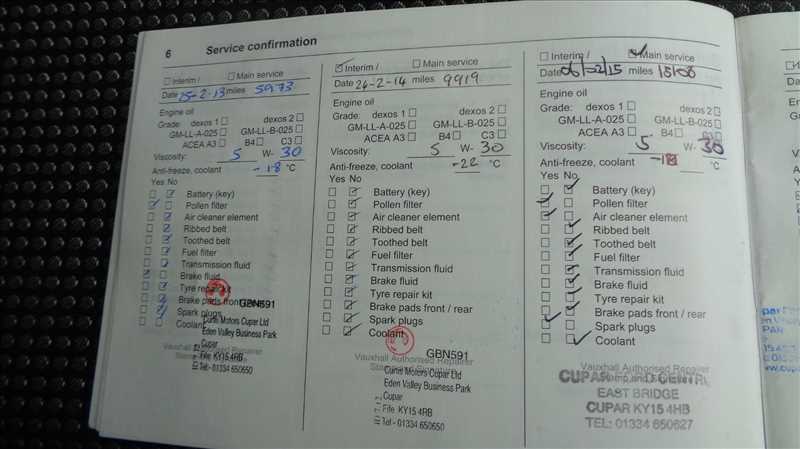 6 Service confirmation
Interim / Main service
Date 15-2-13 miles 5973
Engine oil
Grade: dexos 1 dexos 2
GM-LL-A-025 GM-LL-B-025
ACEA A3 B4 C3
Viscosity: 5 W- 30
Anti-freeze, coolant -18 °C
Yes No
Battery (key)
Pollen filter
Air cleaner element
Ribbed belt
Toothed belt
Fuel filter
Transmission fluid
Brake fluid
Tyre repair kit
Brake pads front / rear
GBN591
Spark plugs
Coolant
Curnie Motors Cupar Ltd
Eden Valley Business Park
Vauxhall Authorised Repairer
Cupar
Fife KY15 4RB
Tel - 01334 650650
Interim / Main service
Date 24-2-14 miles 9919
Engine oil
Grade: dexos 1 dexos 2
GM-LL-A-025 GM-LL-B-025
ACEA A3 B4 C3
Viscosity: 5 W- 30
Anti-freeze, coolant -22 °C
Yes No
Battery (key)
Pollen filter
Air cleaner element
Ribbed belt
Toothed belt
Fuel filter
Transmission fluid
Brake fluid
Tyre repair kit
Brake pads front / rear
Spark plugs
Coolant
GBN591
Vauxhall Authorised Repairer
Curnie Motors Cupar Ltd
Eden Valley Business Park
Cupar
Fife KY15 4RB
Tel - 01334 650650
Interim / Main service
Date 06/02/15 miles 15106
Engine oil
Grade: dexos 1 dexos 2
GM-LL-A-025 GM-LL-B-025
ACEA A3 B4 C3
Viscosity: 5 W- 30
Anti-freeze, coolant -18 °C
Yes No
Battery (key)
Pollen filter
Air cleaner element
Ribbed belt
Toothed belt
Fuel filter
Transmission fluid
Brake fluid
Tyre repair kit
Brake pads front / rear
Spark plugs
Coolant
Vauxhall Authorised Repairer
CUPAR
EAST BRIDGE
CUPAR KY15 4HB
TEL: 01334 650627